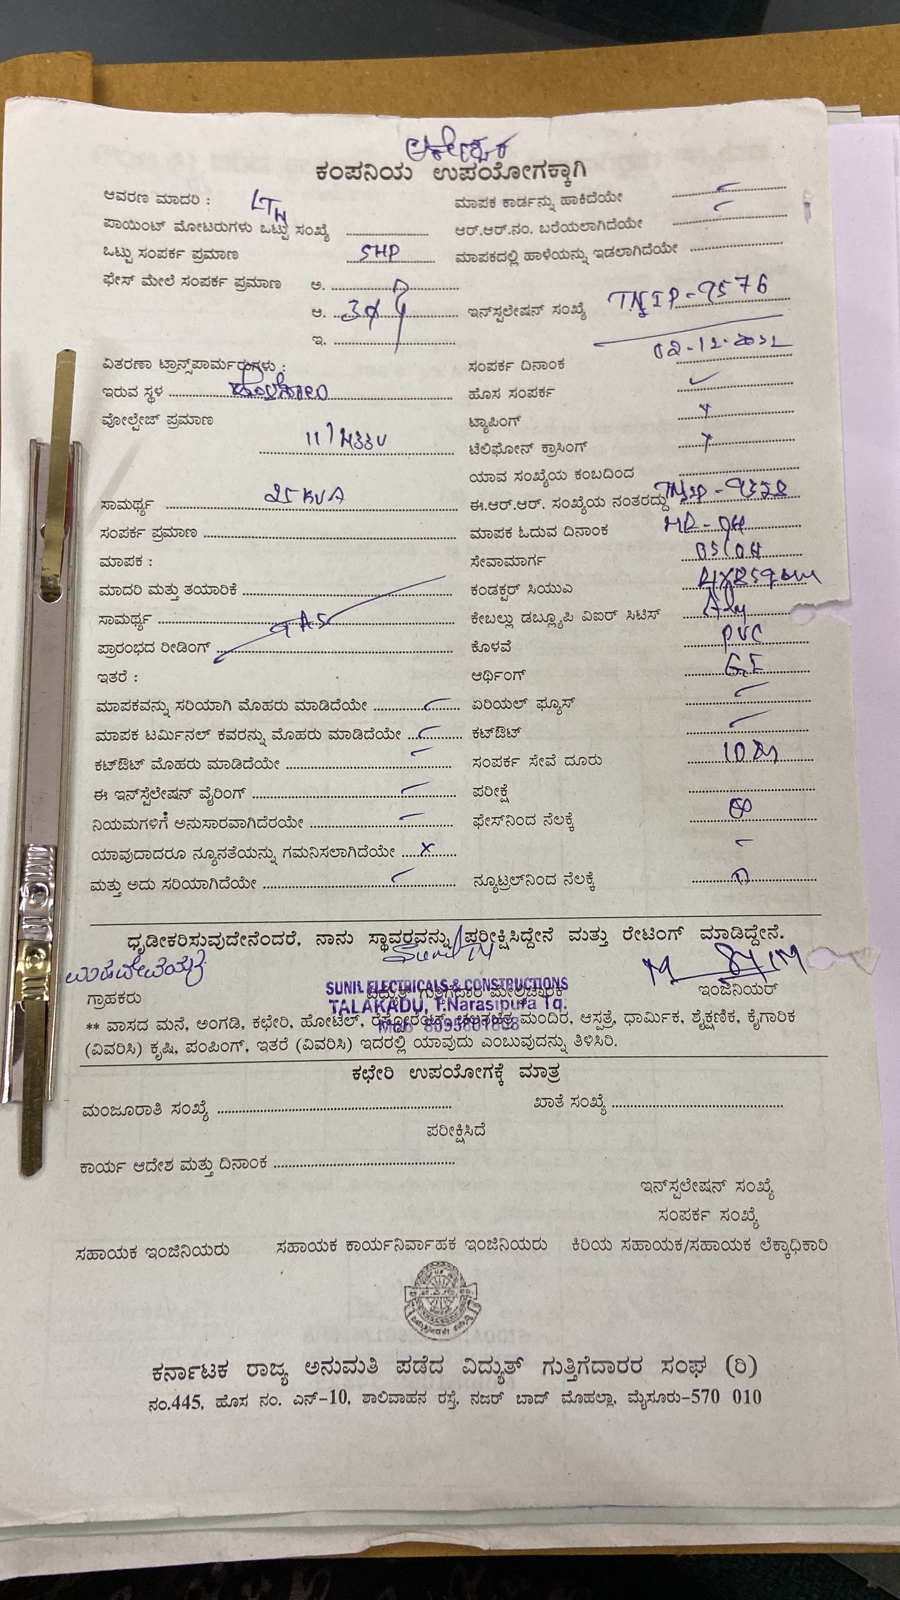 ಕಂಪನಿಯ ಉಪಯೋಗಕ್ಕಾಗಿ
ಆವರಣ ಮಾದರಿ : ಮಾಪಕ ಕಾರ್ಡನ್ನು ಹಾಕಿದೆಯೇ
ಪಾಯಿಂಟ್ ಮೋಟರುಗಳು ಒಟ್ಟು ಸಂಖ್ಯೆ ಆರ್.ಆರ್.ನಂ. ಬರೆಯಲಾಗಿದೆಯೇ
ಒಟ್ಟು ಸಂಪರ್ಕ ಪ್ರಮಾಣ 5HP ಮಾಪಕದಲ್ಲಿ ಹಾಳೆಯನ್ನು ಇಡಲಾಗಿದೆಯೇ
ಫೇಸ್ ಮೇಲೆ ಸಂಪರ್ಕ ಪ್ರಮಾಣ ಅ.
ಆ. ಇನ್‌ಸ್ಟಲೇಷನ್ ಸಂಖ್ಯೆ TNIP-9576
ಇ.
ವಿತರಣಾ ಟ್ರಾನ್ಸ್‌ಪಾರ್ಮರುಗಳು : ಸಂಪರ್ಕ ದಿನಾಂಕ
ಇರುವ ಸ್ಥಳ ಹೊಸ ಸಂಪರ್ಕ
ವೋಲ್ಟೇಜ್ ಪ್ರಮಾಣ ಟ್ಯಾಪಿಂಗ್
ಟೆಲಿಫೋನ್ ಕ್ರಾಸಿಂಗ್
ಯಾವ ಸಂಖ್ಯೆಯ ಕಂಬದಿಂದ
ಸಾಮರ್ಥ್ಯ 25 KVA ಈ.ಆರ್.ಆರ್. ಸಂಖ್ಯೆಯ ನಂತರದ್ದು
ಸಂಪರ್ಕ ಪ್ರಮಾಣ ಮಾಪಕ ಓದುವ ದಿನಾಂಕ
ಮಾಪಕ : ಸೇವಾಮಾರ್ಗ
ಮಾದರಿ ಮತ್ತು ತಯಾರಿಕೆ ಕಂಡಕ್ಟರ್ ಸಿಯುಎ
ಸಾಮರ್ಥ್ಯ ಕೇಬಲ್ಲು ಡಬ್ಲ್ಯೂಪಿ ವಿಐರ್ ಸಿಟಿಸ್
ಪ್ರಾರಂಭದ ರೀಡಿಂಗ್ ಕೊಳವೆ PVC
ಇತರೆ : ಆರ್ಥಿಂಗ್ G.I
ಮಾಪಕವನ್ನು ಸರಿಯಾಗಿ ಮೊಹರು ಮಾಡಿದೆಯೇ ಏರಿಯಲ್ ಫ್ಯೂಸ್
ಮಾಪಕ ಟರ್ಮಿನಲ್ ಕವರನ್ನು ಮೊಹರು ಮಾಡಿದೆಯೇ ಕಟ್‌ಔಟ್
ಕಟ್‌ಔಟ್ ಮೊಹರು ಮಾಡಿದೆಯೇ ಸಂಪರ್ಕ ಸೇವೆ ದೂರು
ಈ ಇನ್‌ಸ್ಟೆಲೇಷನ್ ವೈರಿಂಗ್ ಪರೀಕ್ಷೆ
ನಿಯಮಗಳಿಗೆ ಅನುಸಾರವಾಗಿದೆರಯೇ ಫೇಸ್‌ನಿಂದ ನೆಲಕ್ಕೆ
ಯಾವುದಾದರೂ ನ್ಯೂನತೆಯನ್ನು ಗಮನಿಸಲಾಗಿದೆಯೇ
ಮತ್ತು ಅದು ಸರಿಯಾಗಿದೆಯೇ ನ್ಯೂಟ್ರಲ್‌ನಿಂದ ನೆಲಕ್ಕೆ
ಧೃಡೀಕರಿಸುವುದೇನೆಂದರೆ, ನಾನು ಸ್ಥಾವರವನ್ನು ಪರೀಕ್ಷಿಸಿದ್ದೇನೆ ಮತ್ತು ರೇಟಿಂಗ್ ಮಾಡಿದ್ದೇನೆ.
SUNIL ELECTRICALS & CONSTRUCTIONS
ಗ್ರಾಹಕರು ವಿದ್ಯುತ್ ಗುತ್ತಿಗೆದಾರ ಮೇಲ್ವಿಚಾರಕ ಇಂಜಿನಿಯರ್
TALAKADU, T.Narasipura Tq.
** ವಾಸದ ಮನೆ, ಅಂಗಡಿ, ಕಛೇರಿ, ಹೋಟೆಲ್, ಮಂದಿರ, ಆಸ್ಪತ್ರೆ, ಧಾರ್ಮಿಕ, ಶೈಕ್ಷಣಿಕ, ಕೈಗಾರಿಕೆ
(ವಿವರಿಸಿ) ಕೃಷಿ, ಪಂಪಿಂಗ್, ಇತರೆ (ವಿವರಿಸಿ) ಇದರಲ್ಲಿ ಯಾವುದು ಎಂಬುವುದನ್ನು ತಿಳಿಸಿರಿ.
ಕಛೇರಿ ಉಪಯೋಗಕ್ಕೆ ಮಾತ್ರ
ಮಂಜೂರಾತಿ ಸಂಖ್ಯೆ ಖಾತೆ ಸಂಖ್ಯೆ
ಪರೀಕ್ಷಿಸಿದೆ
ಕಾರ್ಯ ಆದೇಶ ಮತ್ತು ದಿನಾಂಕ
ಇನ್‌ಸ್ಟಲೇಷನ್ ಸಂಖ್ಯೆ
ಸಂಪರ್ಕ ಸಂಖ್ಯೆ
ಸಹಾಯಕ ಇಂಜಿನಿಯರು ಸಹಾಯಕ ಕಾರ್ಯನಿರ್ವಾಹಕ ಇಂಜಿನಿಯರು ಕಿರಿಯ ಸಹಾಯಕ/ಸಹಾಯಕ ಲೆಕ್ಕಾಧಿಕಾರಿ
ಕರ್ನಾಟಕ ರಾಜ್ಯ ಅನುಮತಿ ಪಡೆದ ವಿದ್ಯುತ್ ಗುತ್ತಿಗೆದಾರರ ಸಂಘ (ರಿ)
ನಂ.445, ಹೊಸ ನಂ. ಎನ್-10, ಶಾಲಿವಾಹನ ರಸ್ತೆ, ನಜರ್ ಬಾದ್ ಮೊಹಲ್ಲಾ, ಮೈಸೂರು-570 010